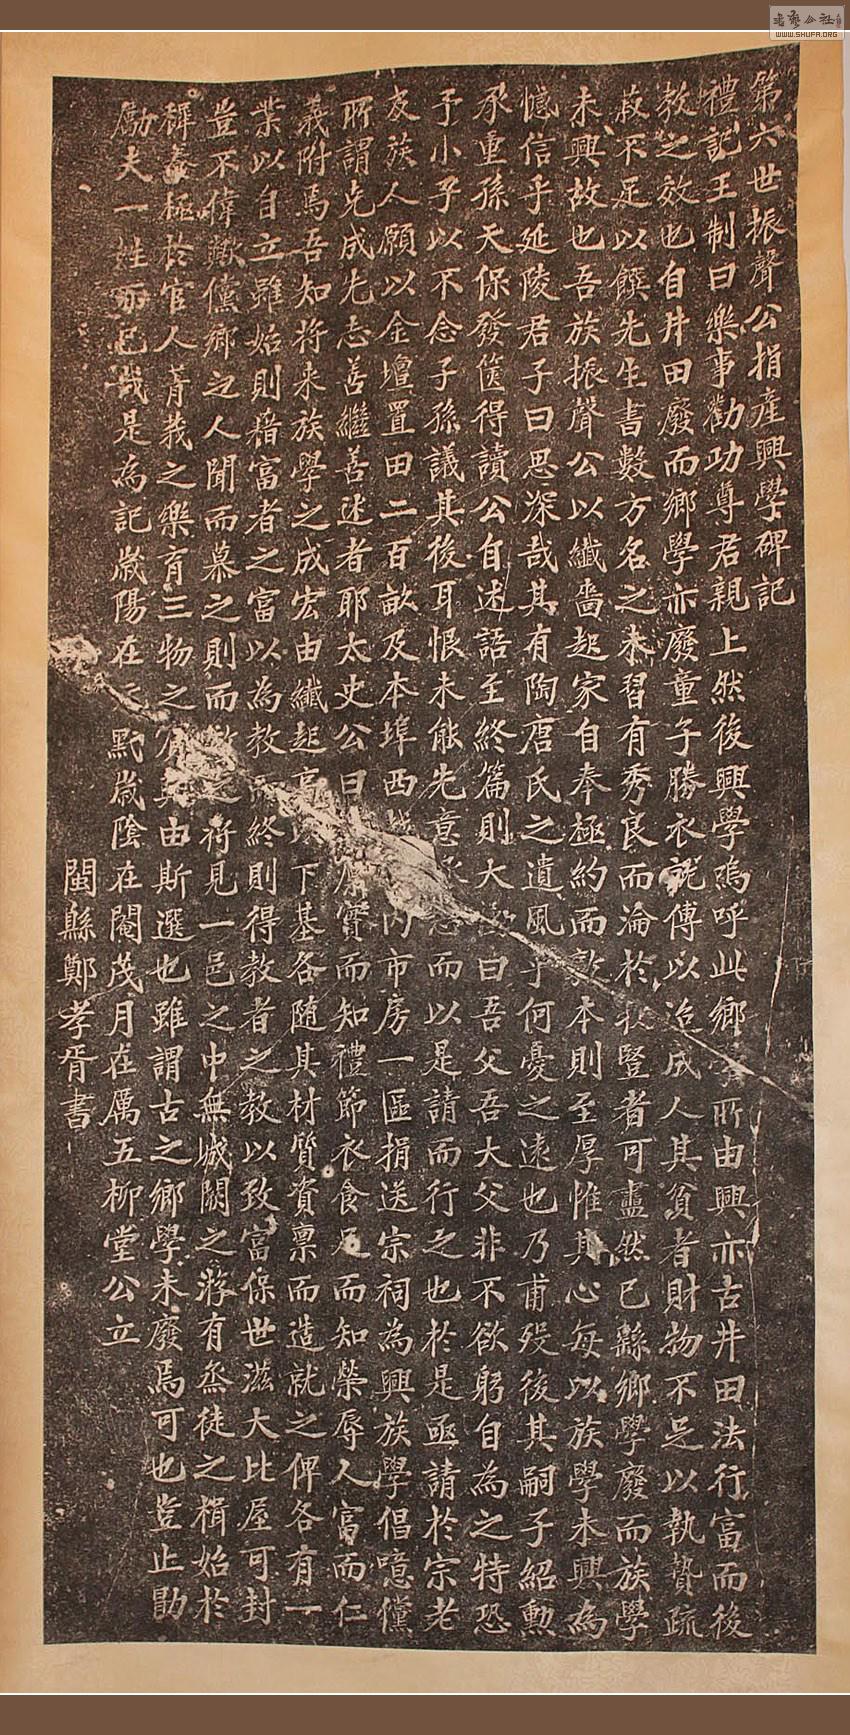 第六世振聲公捐產興學碑記
禮記王制曰樂事勸功尊君親上然後興學嗚呼此鄉學所由興亦古井田法行富而後
教之效也自井田廢而鄉學亦廢童子勝衣就傅以迨成人其貧者財物不足以執贄疏
菽不足以饌先生書數方名之未習有秀良而淪於牧豎者可盡然已縣鄉學廢而族學
未興故也吾族振聲公以纖嗇起家自奉極約而敦本則至厚惟其心每以族學未興為
憾信乎延陵君子曰思深哉其有陶唐氏之遺風乎何憂之遠也乃甫歿後其嗣子紹勳
承重孫天保發篋得讀公自述語至終篇則大慟曰吾父吾大父非不欲躬自為之特恐
予小子以不念子孫議其後耳恨未能先意承志而以是請而行之也於是亟請於宗老
友族人願以金壇置田二百畝及本埠西城內市房一區捐送宗祠為興族學倡噫儻
所謂克成先志善繼善述者耶太史公曰實而知禮節衣食足而知榮辱人富而仁
義附焉吾知將來族學之成宏由纖起高以下基各隨其材質資稟而造就之俾各有一
業以自立雖始則藉富者之富以為教而終則得教者之教以致富保世滋大比屋可封
豈不偉歟儻鄉之人聞而慕之則而之將見一邑之中無城闕之游有烝徒之楫始於
稱彝極於官人菁莪之樂育三物之賓其由斯選也雖謂古之鄉學未廢焉可也豈止勖
勵夫一姓而已哉是為記歲陽在玄黓歲陰在閹茂月在厲五柳堂公立
閩縣鄭孝胥書
老藝公社
WWW.SHUFA.ORG